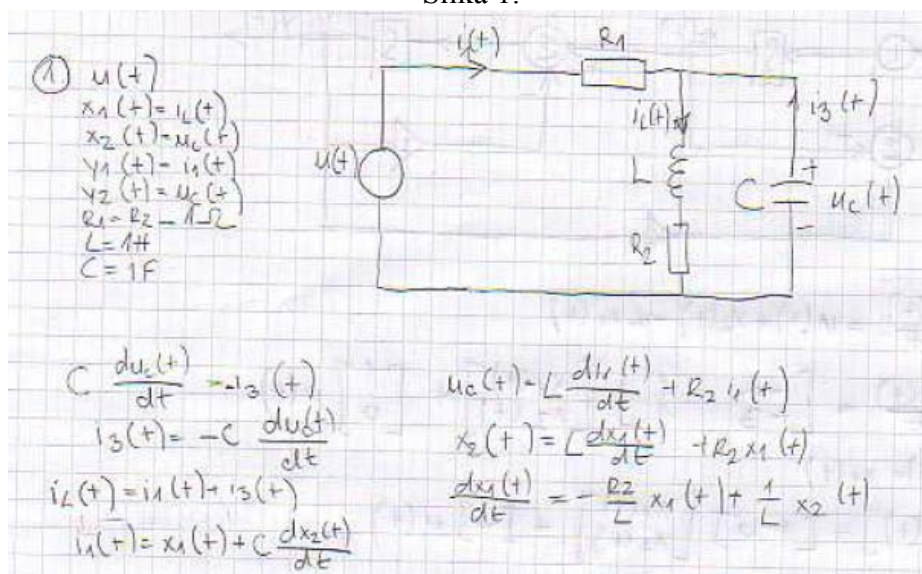 Slika 1.
① u(t)
x₁(t)=i_L(t)
x₂(t)=u_c(t)
y₁(t)=i₁(t)
y₂(t)=u_c(t)
R₁=R₂=1Ω
L=1H
C=1F
i₁(t)
R₁
u(t)
i_L(t)
L
R₂
i₃(t)
C
+
u_c(t)
-
C du_c(t)/dt = -i₃(t)
i₃(t) = -C du_c(t)/dt
i_L(t) = i₁(t) + i₃(t)
i₁(t) = x₁(t) + C dx₂(t)/dt
u_c(t) = L di_L(t)/dt + R₂ i_L(t)
x₂(t) = L dx₁(t)/dt + R₂ x₁(t)
dx₁(t)/dt = - R₂/L x₁(t) + 1/L x₂(t)